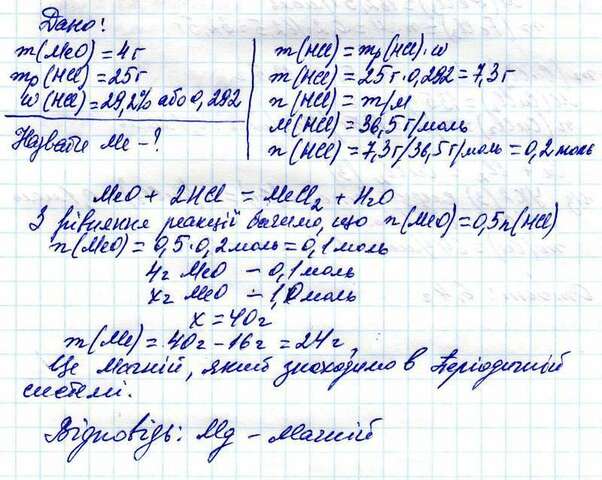 Дано:
m(MeO) = 4г
mр(HCl) = 25г
w(HCl) = 29,2% або 0,292
Назвати Me - ?
m(HCl) = mр(HCl)·w
m(HCl) = 25г·0,292 = 7,3г
n(HCl) = m/M
M(HCl) = 36,5г/моль
n(HCl) = 7,3г/36,5г/моль = 0,2моль
MeO + 2HCl = MeCl₂ + H₂O
З рівняння реакції бачимо, що n(MeO) = 0,5n(HCl)
n(MeO) = 0,5·0,2моль = 0,1моль
4г MeO - 0,1моль
xг MeO - 1,0моль
x = 40г
m(Me) = 40г - 16г = 24г
Це Магній, який знаходимо в Періодичній
системі.
Відповідь: Mg - Магній